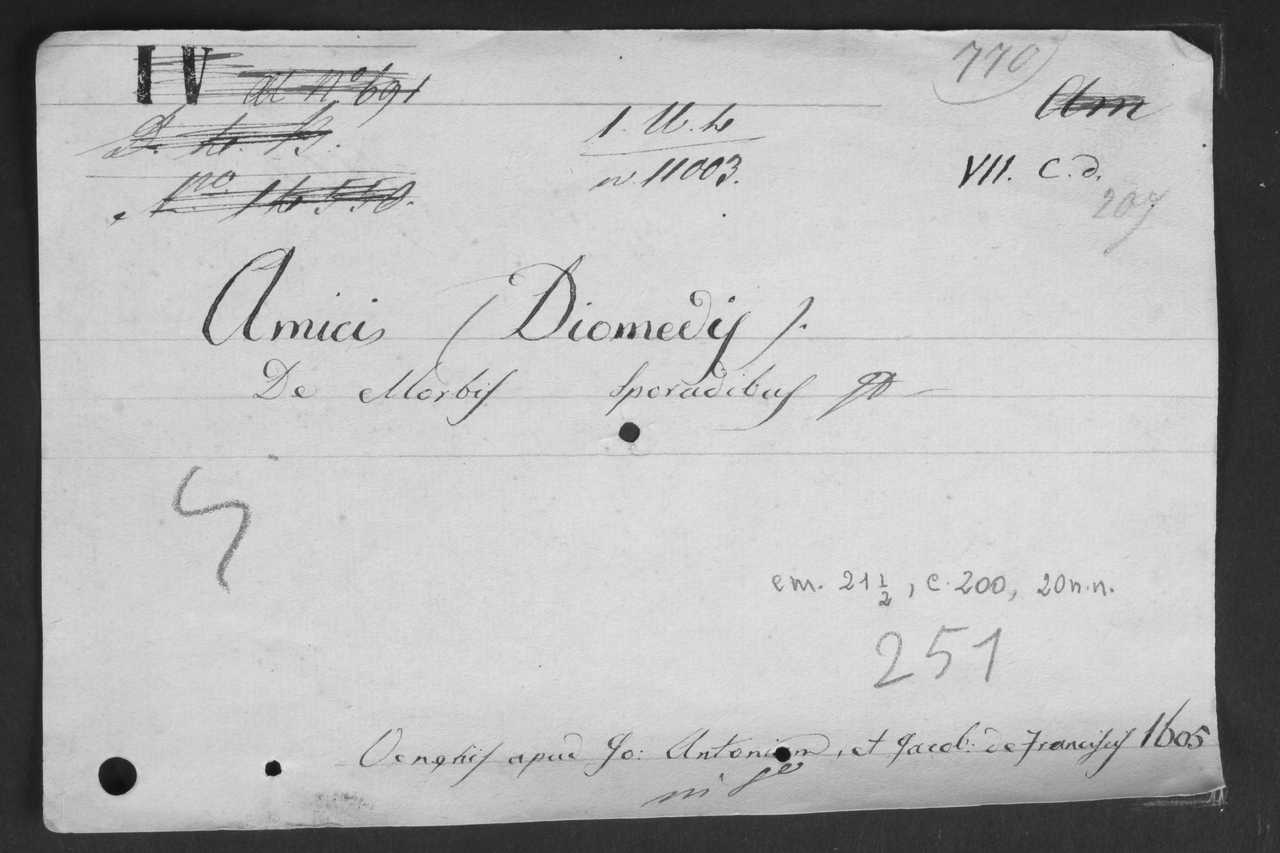 IV al N° 691
770
Am
1. U. 4
n. 11003.
VII. C. d.
207
No. 14550.
Amicis (Diomedis).
De Morbis sporadibus
cm. 21 1/2, c. 200, 20 n.n.
251
Venetiis apud Jo: Antonium, et Jacob: de Franciscis 1605
in 4°